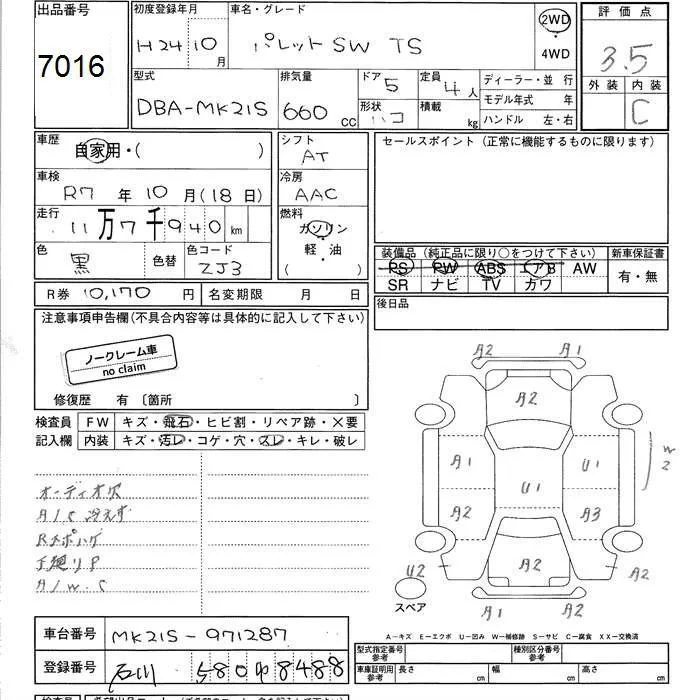 出品番号
7016
初度登録年月
H24 10月
車名・グレード
パレットSW TS
2WD
・
4WD
評価点
3.5
外装 内装
C
型式
DBA-MK21S
排気量
660 CC
ドア 5
形状 ハコ
定員 4人
積載 kg
ディーラー・並 行
モデル年式 年
ハンドル 左・右
車歴
自家用・( )
車検
R7 年 10 月(18 日)
走行
11万7千940 km
色
黒
色替
色コード
ZJ3
シフト
AT
冷房
AAC
燃料
ガソリン
軽・油
( )
セールスポイント(正常に機能するものに限ります)
装備品(純正品に限り○をつけて下さい)
新車保証書
PS PW ABS エアB AW
有・無
SR ナビ TV カワ
後日品
R券 10,170 円
名変期限 月 日
注意事項申告欄(不具合内容等は具体的に記入して下さい)
ノークレーム車
no claim
修復歴 有〔箇所 〕
検査員
記入欄
FW キズ・飛石・ヒビ割・リペア跡・×要
内装 キズ・汚レ・コゲ・穴・スレ・キレ・破レ
オーディオ欠
A/C冷えず
A/W.C
A2 A1
A2
A1 U1 W2
U1
A2 A3
A2
U2 A2
A1 A2
スペア
A-キズ E-エクボ U-凹み W-補修跡 S-サビ C-腐食 XX-交換済
車台番号
MK21S-971287
登録番号
石川 580 ゆ 8488
型式指定番号
参考
種別区分番号
参考
車庫証明用
参考
長さ cm 幅 cm 高さ cm